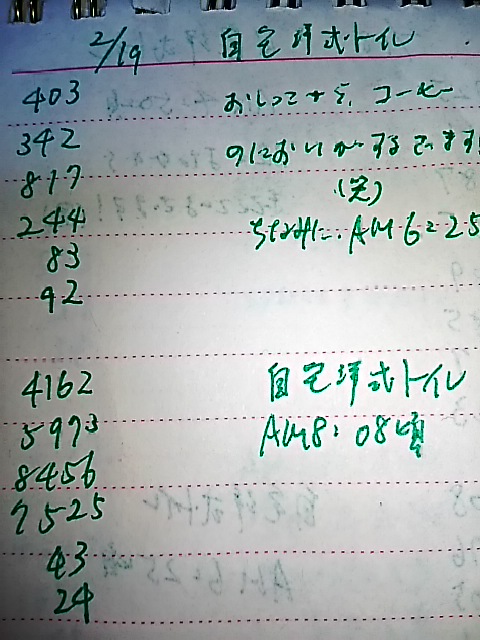 2/19 自宅洋式トイレ
403
342
817
244
83
42
コーヒー
のにおいがするでます!
(笑)
ちなみに、AM6:25
4162
5973
8456
7525
43
24
自宅洋式トイレ
AM8:08頃